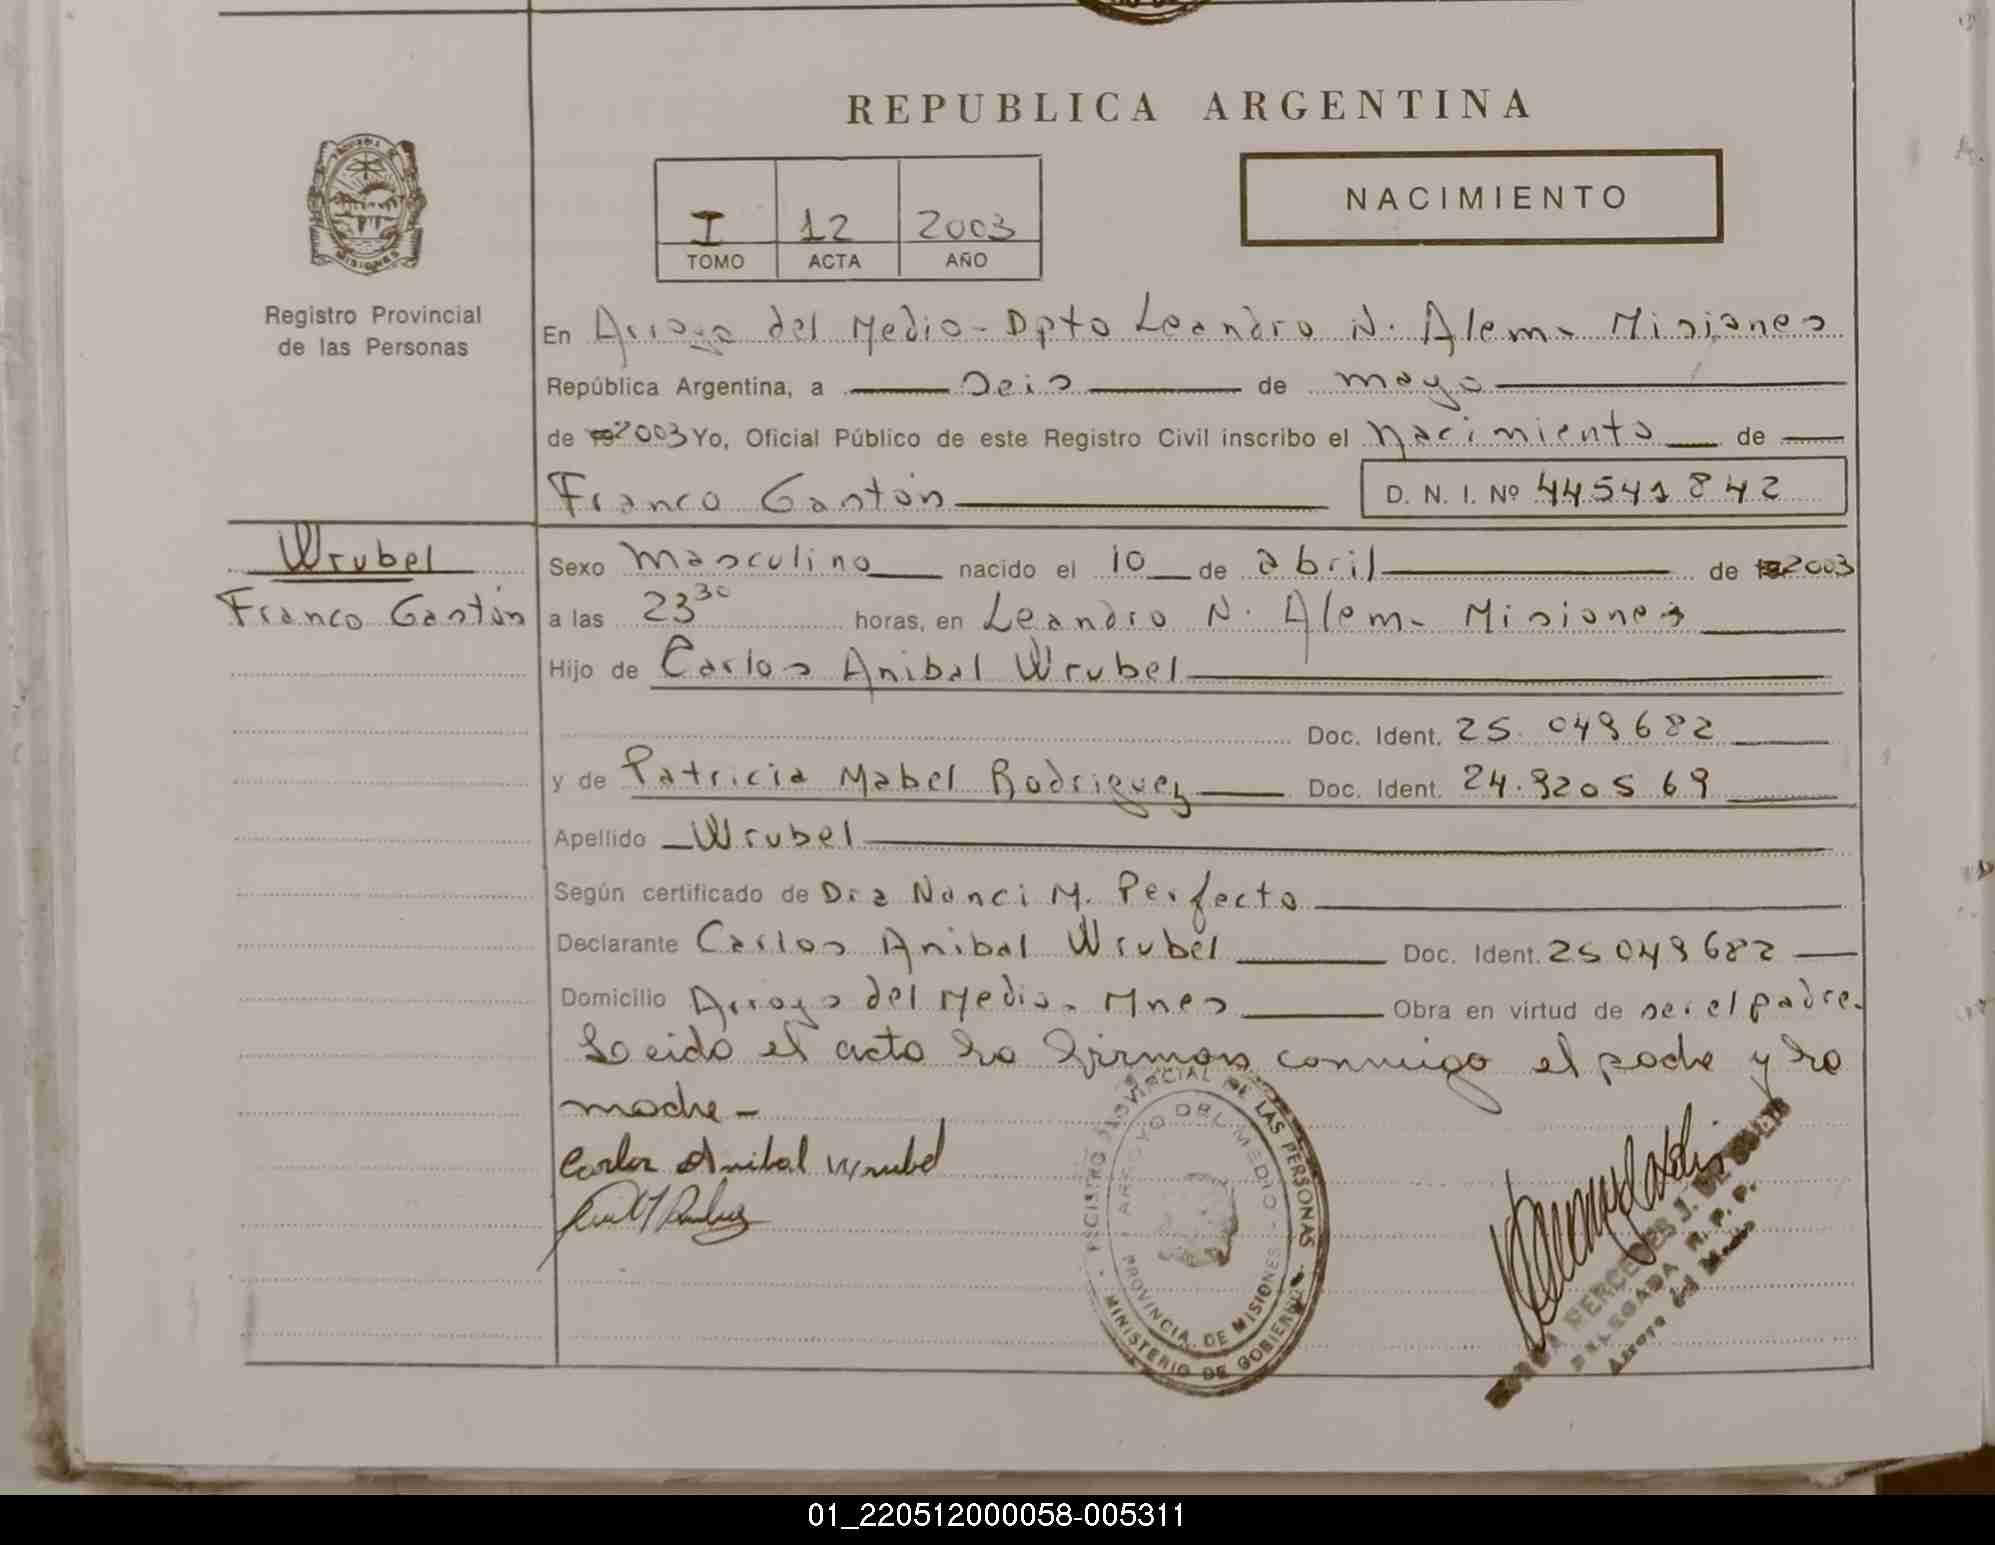 REPUBLICA ARGENTINA
NACIMIENTO
I 12 2003
TOMO ACTA AÑO
MISIONES
Registro Provincial
de las Personas
En Arroyo del Medio - Dpto Leandro N. Alem - Misiones
República Argentina, a seis de mayo
de 2003 Yo, Oficial Público de este Registro Civil inscribo el nacimiento de
Franco Gastón D. N. I. Nº 44541842
Wrubel
Franco Gastón
Sexo masculino nacido el 10 de abril de 2003
a las 23 30 horas, en Leandro N. Alem - Misiones
Hijo de Carlos Anibal Wrubel
Doc. Ident. 25.049682
y de Patricia Mabel Rodriguez Doc. Ident. 24.920569
Apellido Wrubel
Según certificado de Dra Nanci M. Perfecto
Declarante Carlos Anibal Wrubel Doc. Ident. 25049682
Domicilio Arroyo del Medio - Mnes Obra en virtud de ser el padre.
Leido el acta la firman conmigo el padre y la
madre -
Carlos Anibal Wrubel
REGISTRO PROVINCIAL DE LAS PERSONAS
ARROYO DEL MEDIO
PROVINCIA DE MISIONES
MINISTERIO DE GOBIERNO
DELEGADA R. P. P.
Arroyo del Medio
01_220512000058-005311